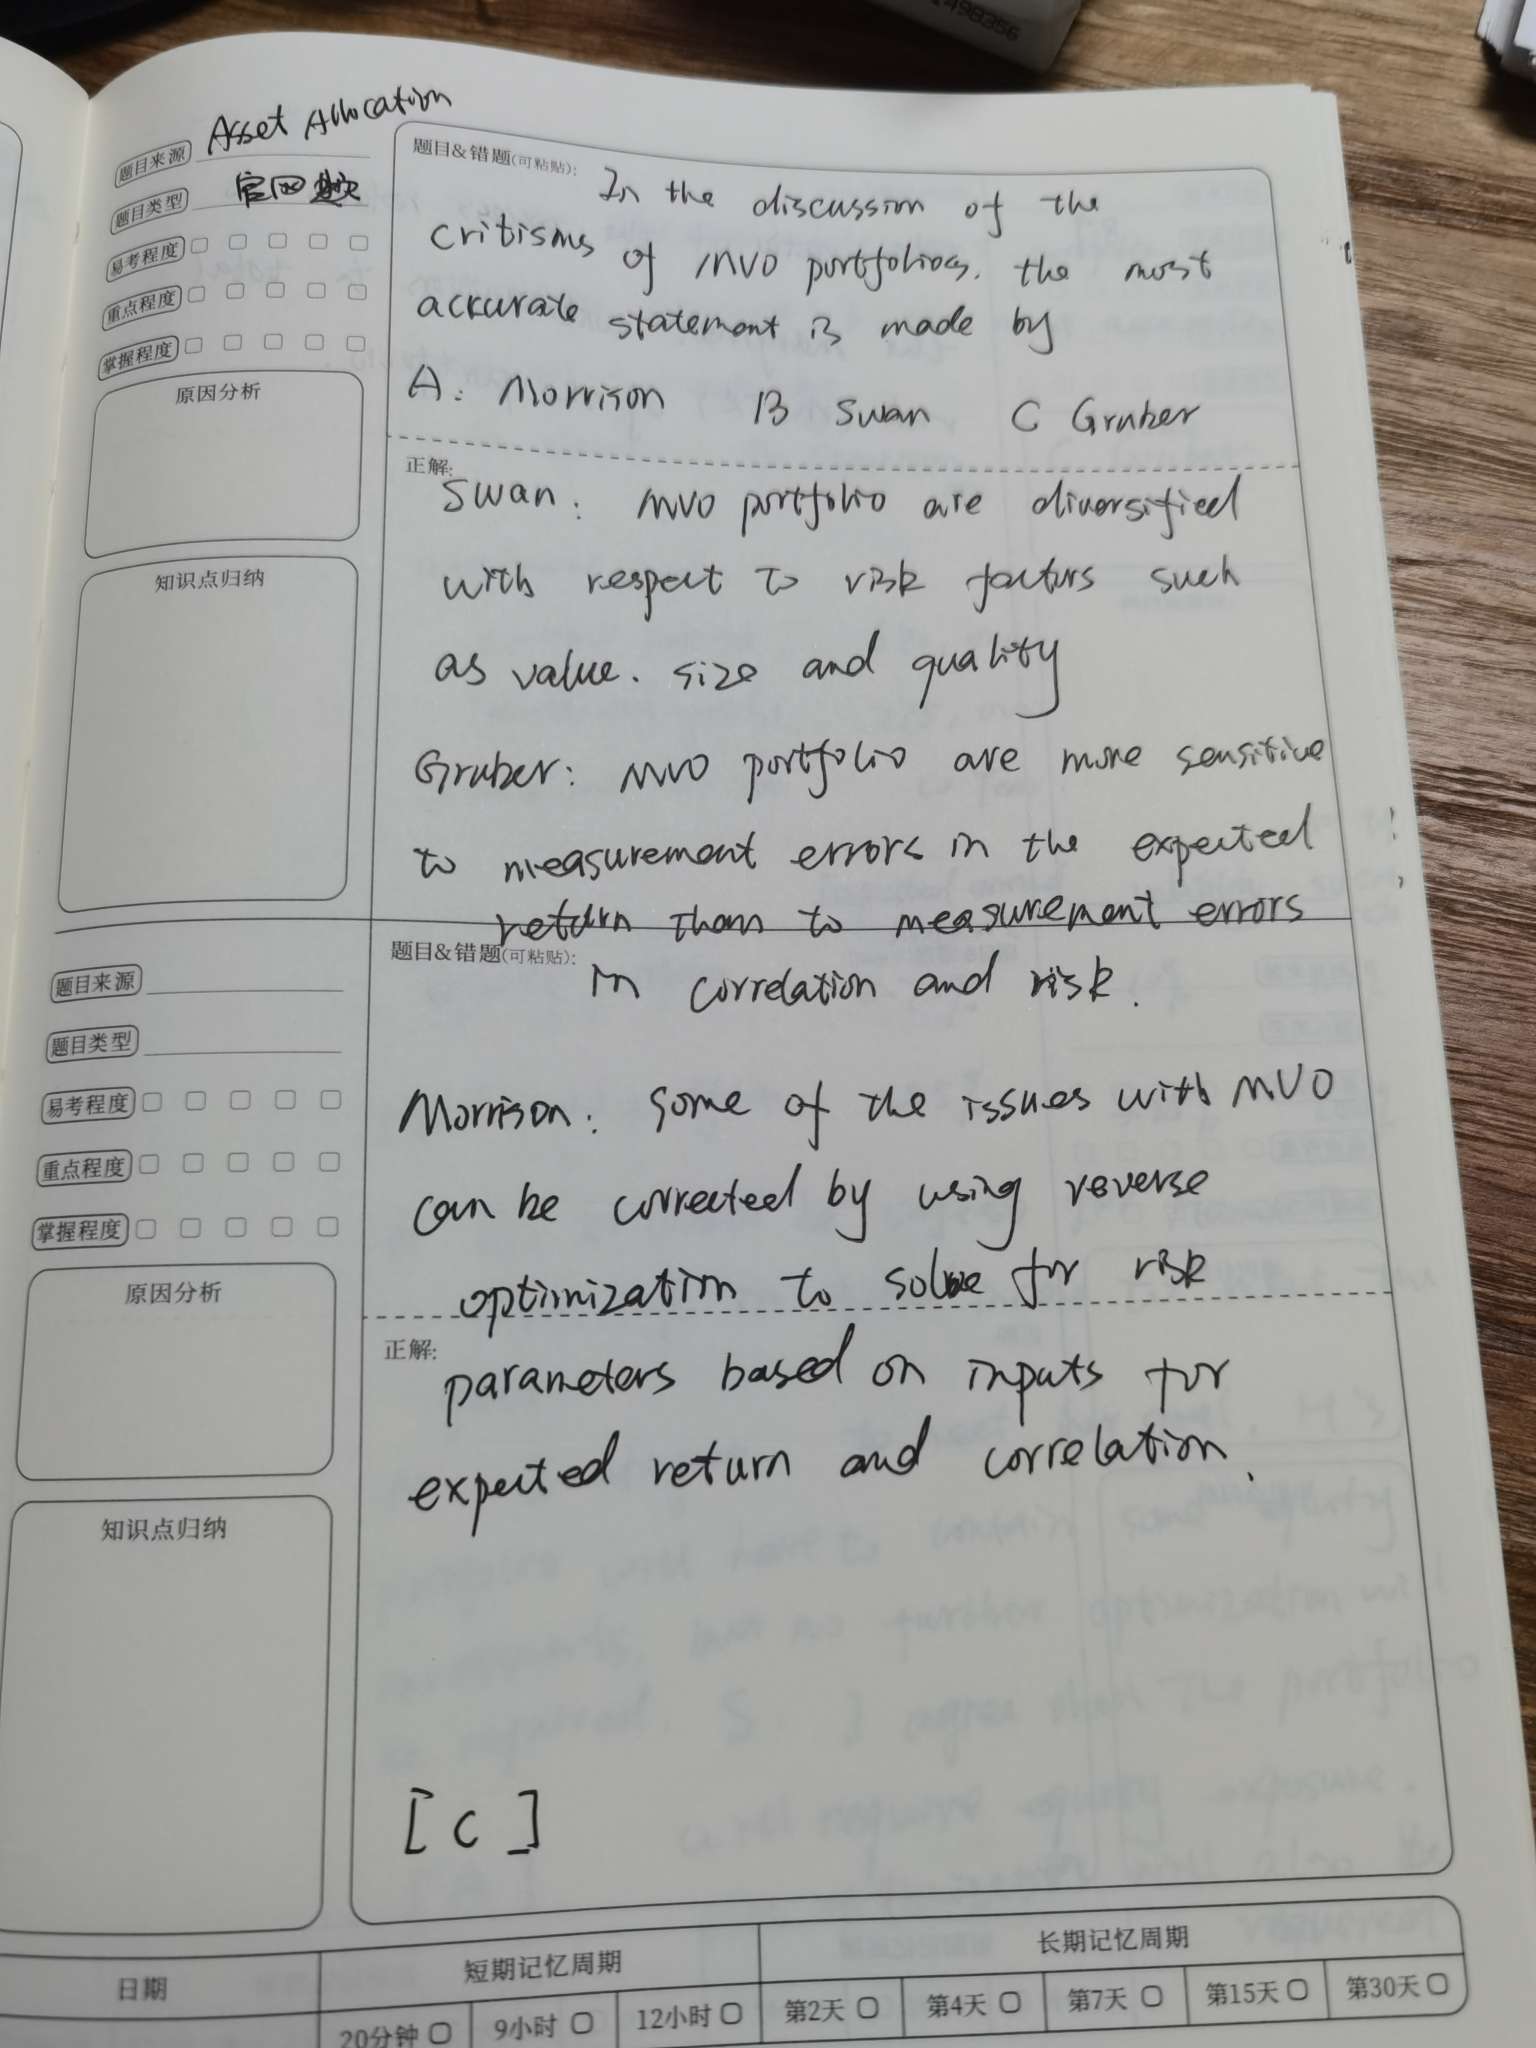 1498356
题目来源 Asset Allocation
题目类型 官网题
易考程度
重点程度
掌握程度
原因分析
知识点归纳
题目&错题(可粘贴): In the discussion of the
critisms of MVO portfolios. the most
accurate statement is made by
A: Morrison B Swan C Gruber
正解:
Swan: MVO portfolio are diversified
with respect to risk factors such
as value. size and quality
Gruber: MVO portfolio are more sensitive
to measurement errors in the expected
return than to measurement errors
题目&错题(可粘贴): in correlation and risk.
题目来源
题目类型
易考程度
重点程度
掌握程度
原因分析
知识点归纳
Morrison: Some of the issues with MVO
can be corrected by using reverse
optimization to solve for risk
正解:
parameters based on inputs for
expected return and correlation.
[C]
日期 短期记忆周期 长期记忆周期
20分钟 9小时 12小时 第2天 第4天 第7天 第15天 第30天